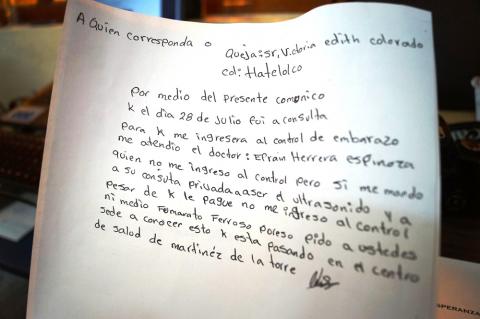 A Quien corresponda o
Queja: sr, Victoria edith colorado
col: tlatelolco
Por medio del presente comonico
k el dia 28 de Julio fui a consulta
Para k me ingresera al control de embarazo
me atendio el doctor: Efrain Herrera espinoza
quien no me ingreso al control pero si me mando
a su consuta privada aaser el ultrasonido y a
pesar de k le pague no me ingreso al control
ni medio Fomarato Ferroso Poreso pido a ustedes
sede a conoser esto k esta pasando en el centro
de salod de martinéz de la torre
SPERANZA